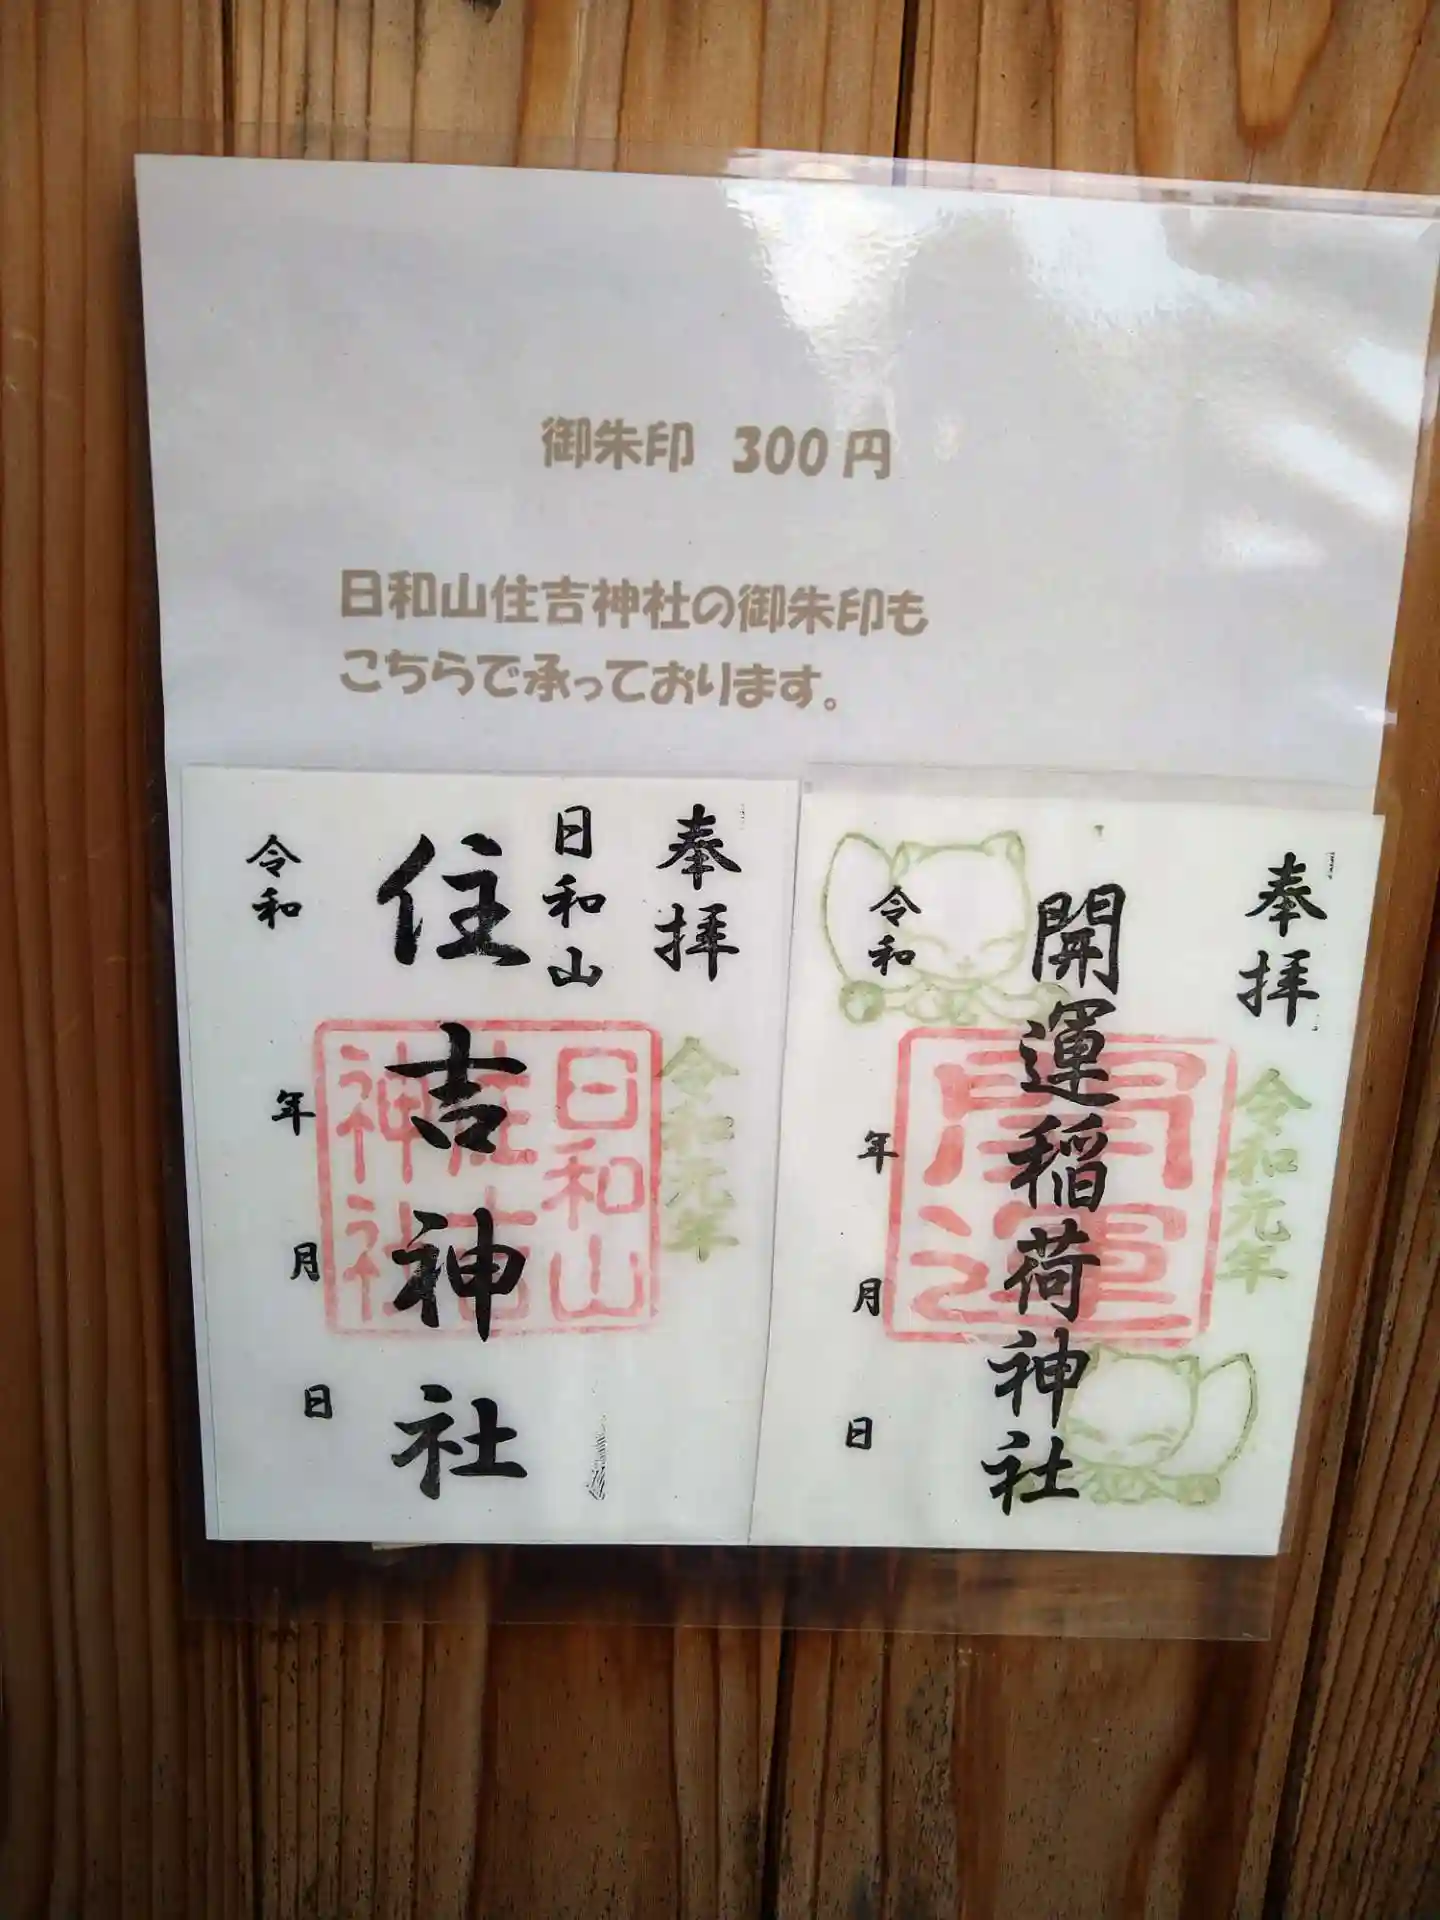 御朱印 300円
日和山住吉神社の御朱印も
こちらで承っております。
奉拝
日和山
住吉神社
令和 年 月 日
令和元年
日和山
住吉
神社
奉拝
開運稲荷神社
令和 年 月 日
令和元年
開運